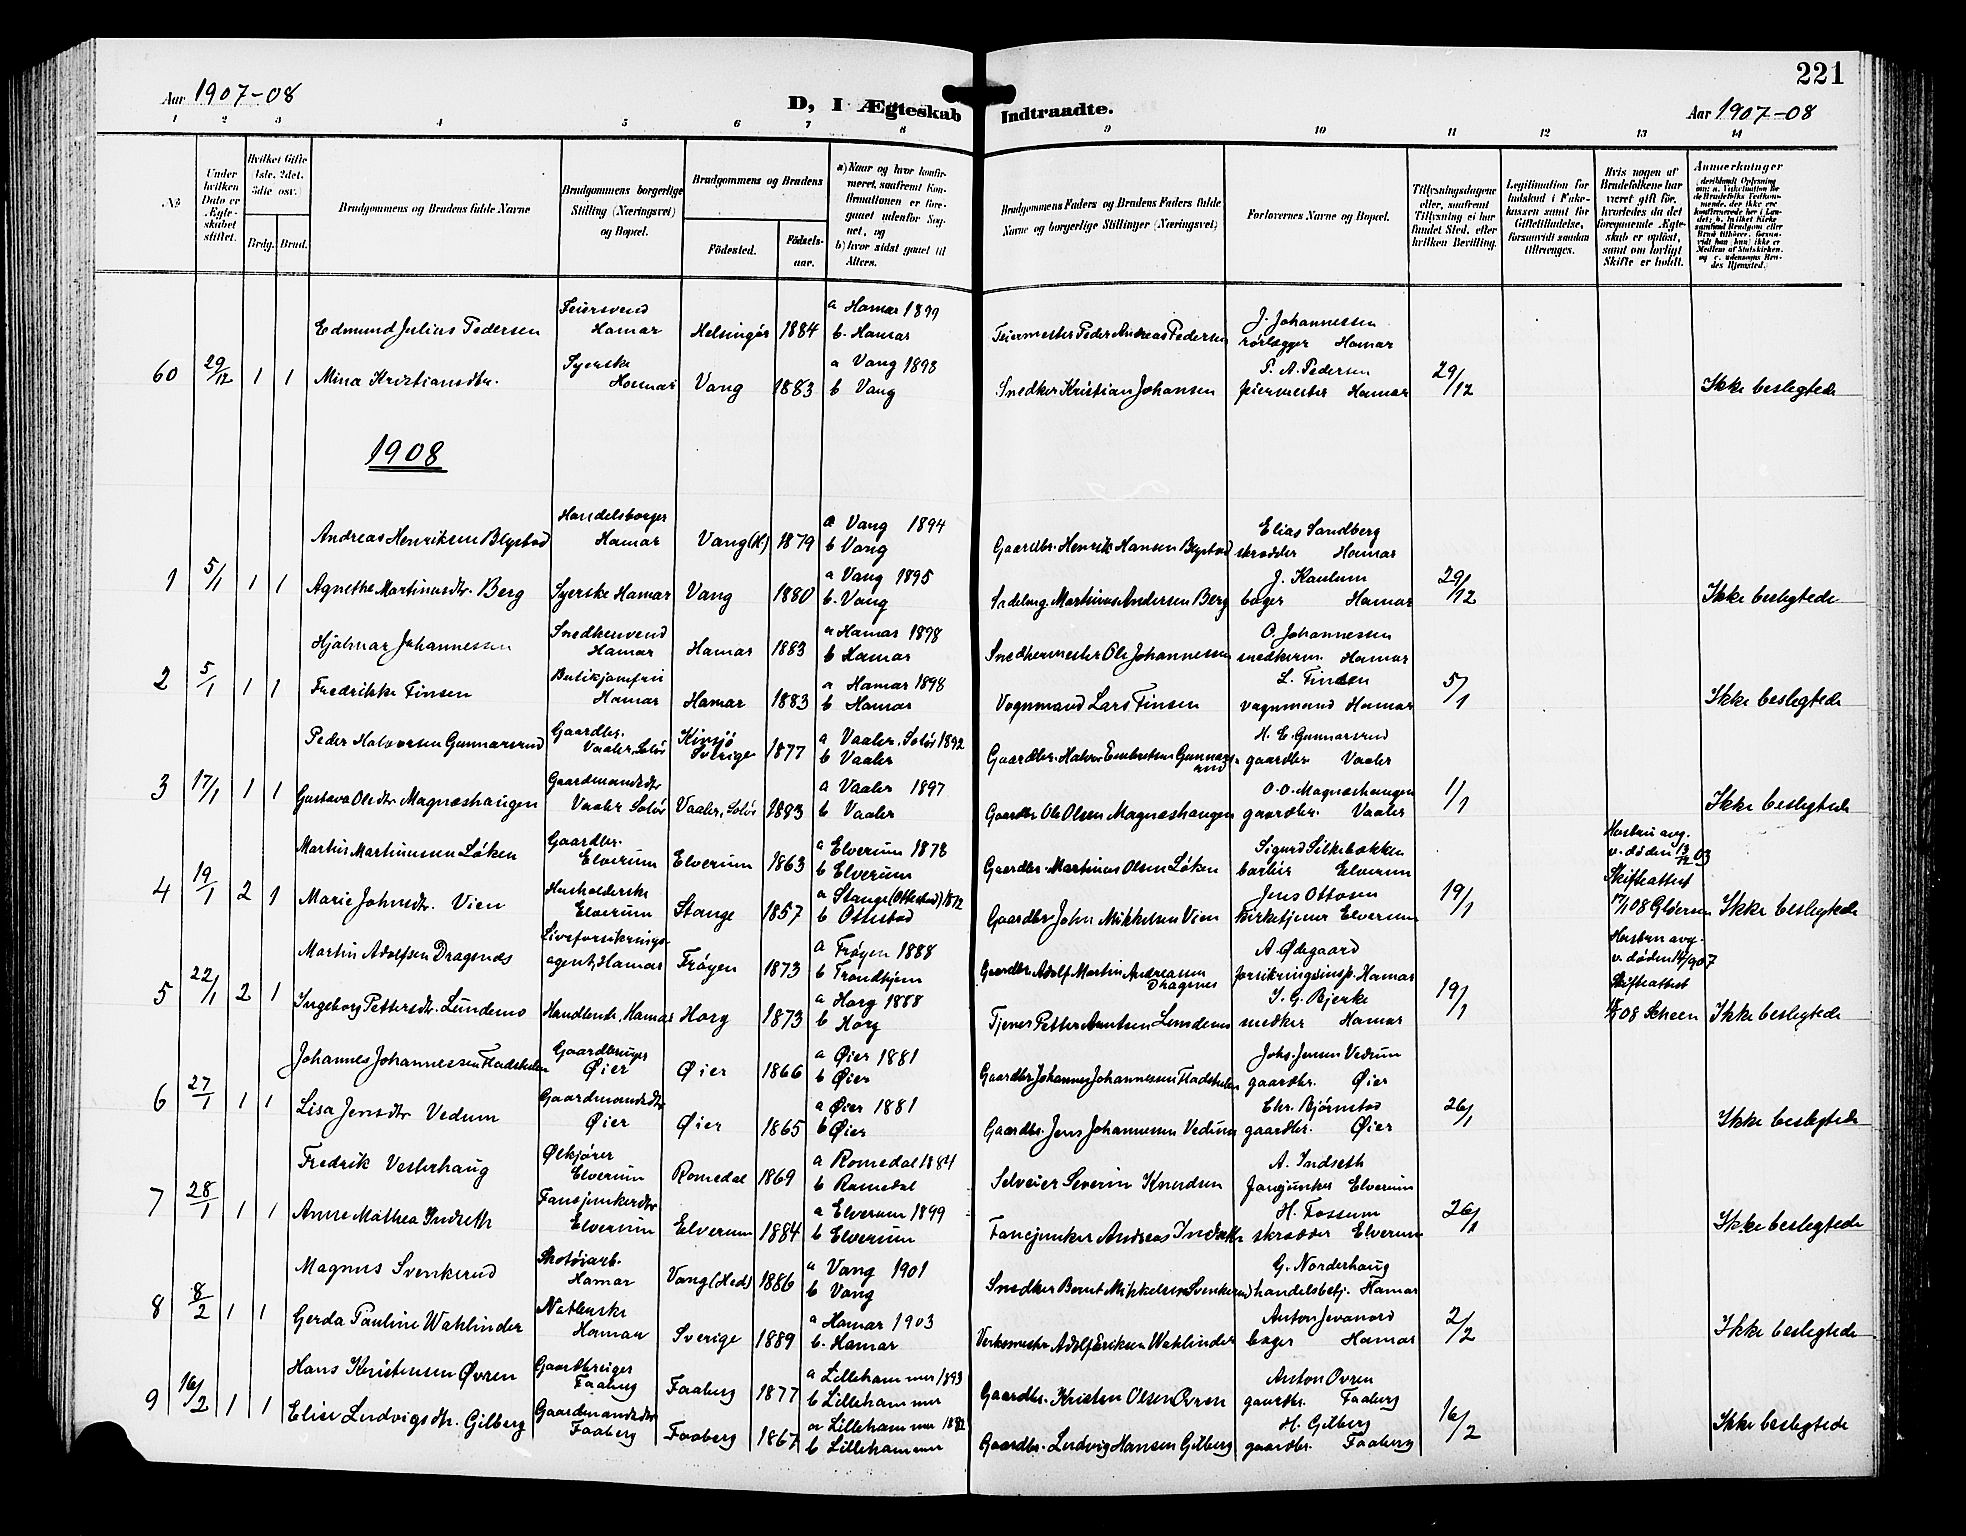 221
Aar 1907-08
D, I Ægteskab Indtraadte.
Aar 1907-08
1 2 3 4 5 6 7 8 9 10 11 12 13 14
No
Under hvilken Dato er Ægteskabet stiftet.
Hvilket Gifte 1ste, 2det, 3die osv.
Brdg. Brud.
Brudgommens og Brudens fulde Navne
Brudgommens borgerlige Stilling (Næringsvei) og Bopæl.
Brudgommens og Brudens
Födested.
Födselsaar.
a) Naar og hvor konfirmeret, saafremt Konfirmationen er foregaaet udenfor Sognet, og
b) hvor sidst gaaet til Alters.
Brudgommens Faders og Brudens Faders fulde Navne og borgerlige Stillinger (Næringsvei)
Forlovernes Navne og Bopæl.
Tillysningsdagene eller, saafremt Tillysning ei har fundet Sted, efter hvilken Bevilling.
Legitimation for Indskud i Enkekassen samt for Giftetilladelse, forsaavidt saadan tiltrænges.
Hvis nogen af Brudefolkene har været gift før, hvorledes da det foregaaende Ægteskab er opløst, samt om lovligt Skifte er holdt.
Anmerkninger
Edmund Julius Pedersen Feiersvend Hamar Helsingør 1884 a Hamar 1899 b. Hamar Feiermester Peder Andreas Pedersen J. Johannessen rørlægger Hamar
60 29/12 1 1 Mina Kristiansdtr. Syerske Hamar Vang 1883 a Vang 1898 b Vang Snedker Kristian Johansen P. A. Pedersen feiermester Hamar 29/12 Ikke beslegtede
1908
Andreas Henriksen Blystad Handelsborger Hamar Vang (H) 1879 a Vang 1894 b Vang Gaardbr. Henrik Hansen Blystad Elias Sandberg skrædder Hamar
1 5/1 1 1 Agnethe Martinusdtr. Berg Syerske Hamar Vang 1880 a Vang 1895 b. Vang Sadelmg. Martinus Andersen Berg J. Kaulum bager Hamar 29/12 Ikke beslegtede
Hjalmar Johannessen Snedkersvend Hamar Hamar 1883 a Hamar 1898 b Hamar Snedkermester Ole Johannessen O. Johannessen snedkerm. Hamar
2 5/1 1 1 Fredrikke Finsen Butikjomfru Hamar Hamar 1883 a Hamar 1898 b Hamar Vognmand Lars Finsen L. Finsen vognmand Hamar 5/1 Ikke beslegtede
Peder Halvorsen Gunnarsrud Gaardbr. Vaaler, Solør Sverige 1877 a Vaaler, Solør 1892 b Vaaler Gaardbr. Halvor Embretsen Gunnarsrud H. E. Gunnarsrud gaardbr. Vaaler
3 17/1 1 1 Gustava Olsdtr Magnæshaugen Gaardmandsdtr Vaaler Solør Vaaler, Solør 1883 a Vaaler 1897 b Vaaler Gaardbr Ole Olsen Magnæshaugen O. O. Magnæshaugen gaardbr. Vaaler 1/1 Ikke beslegtede
Martin Martinusen Løken Gaardbr. Elverum Elverum 1863 a Elverum 1878 b Elverum Gaardbr. Martinus Olsen Løken Sigurd Silkebækken barber Elverum Hustru avg. v. døden 13/12 03
4 19/1 2 1 Marie Johnsdtr. Vien Husholderske Elverum Stange 1857 a Stange (Ottestad) 1872 b Ottestad Gaardbr John Mikkelsen Vien Jens Ottosen Kirketjener Elverum 19/1 Skifteattest 17/1 08 Ikke beslegtede
Martin Adolfsen Dragenæs Livsforsikringsagent, Hamar Frøyen 1873 a Frøyen 1888 b Trondhjem Gaardbr. Adolf Martin Andreassen Dragenes A. Ødegaard forsikringsinsp. Hamar Hustru avg. v. døden
5 22/1 2 1 Ingeborg Pettersdtr. Lundemo Handlende, Hamar Horg 1873 a Horg 1888 b Horg Tjener Petter Arntsen Lundemo I. G. Bjerke snedker Hamar 19/1 Skifteattest 08 Scheen Ikke beslegtede
Johannes Johannessen Gaardbruger Øier Øier 1866 a Øier 1881 b Øier Gaardbr. Johannes Johannessen Johs. Jensen Vedum gaardbr. Øier
6 27/1 1 1 Lisa Jensdtr Vedum Gaardmandsdtr Øier Øier 1865 a Øier 1881 b Øier Gaardbr. Jens Johannessen Vedum Chr. Bjørnstad gaardbr. Øier 26/1 Ikke beslegtede
Fredrik Vesterhaug Ølkjører Elverum Romedal 1869 a Romedal 1884 b Romedal Selveier Severin Knudsen A. Indseth fanejunker Elverum
7 28/1 1 1 Anne Mathea Indseth Fanejunkerdtr Elverum Elverum 1884 a Elverum 1899 b Elverum Fanejunker Andreas Indseth H. Fossum skrædder Elverum 26/1 Ikke beslegtede
Magnus Svenkerud Skotøiarb. Hamar Vang (Hed.) 1886 a Vang 1901 b Vang Snedker Bernt Mikkelsen Svenkerud G. Norderhaug handelsbetj. Hamar
8 8/2 1 1 Gerda Pauline Wahlinder Hamar Sverige 1889 a Hamar 1903 b. Hamar Verksmestr Adolf Eriksen Wahlinder Anton Jevanord bager Hamar 2/2 Ikke beslegtede
Hans Kristensen Øvren Gaardbruger Faaberg Faaberg 1877 a Lillehammer 1893 b Lillehammer Gaardbr. Kristen Olsen Øvren Anton Øvren gaardbr. Faaberg
9 16/2 1 1 Elise Ludvigsdtr. Gilberg Gaardmandsdtr Faaberg Faaberg 1867 a Lillehammer 1882 b Lillehammer Gaardbr. Ludvig Hansen Gilberg H. Gilberg gaardbr. Faaberg 16/2 Ikke beslegtede